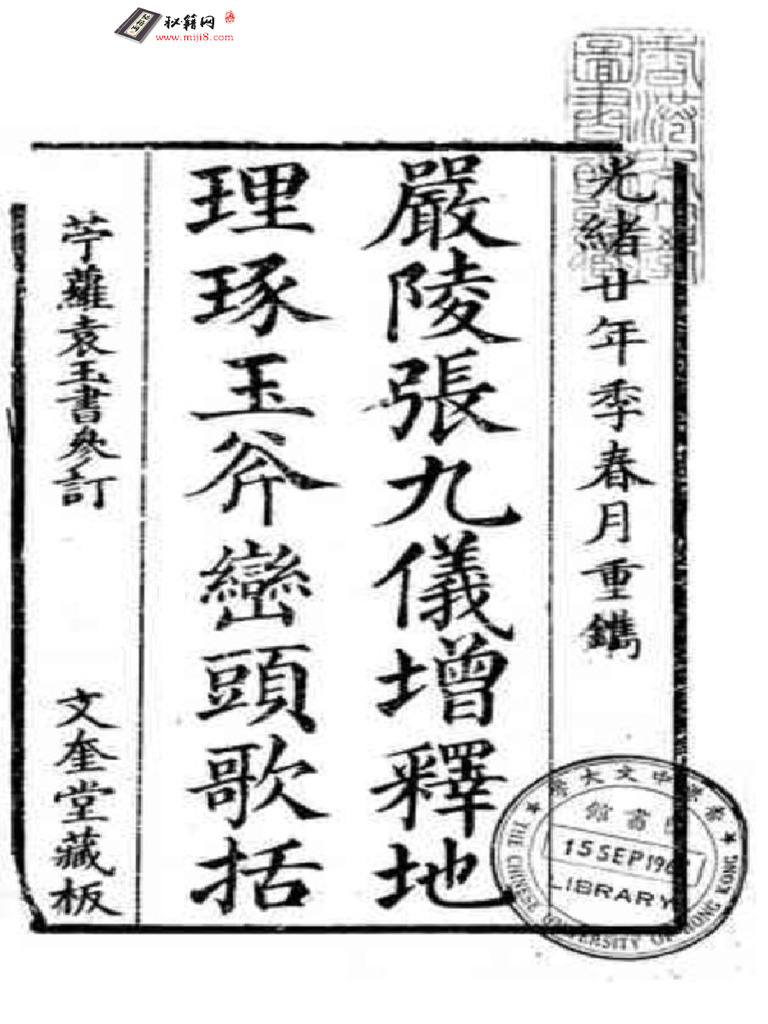 秘籍网
www.miji8.com
光緒廿年季春月重鐫
嚴陵張九儀增釋地
理琢玉斧巒頭歌括
苧蘿袁玉書參訂
文奎堂藏板
香港中文大學
圖書館
15 SEP 196
LIBRARY
THE CHINESE UNIVERSITY OF HONG KONG